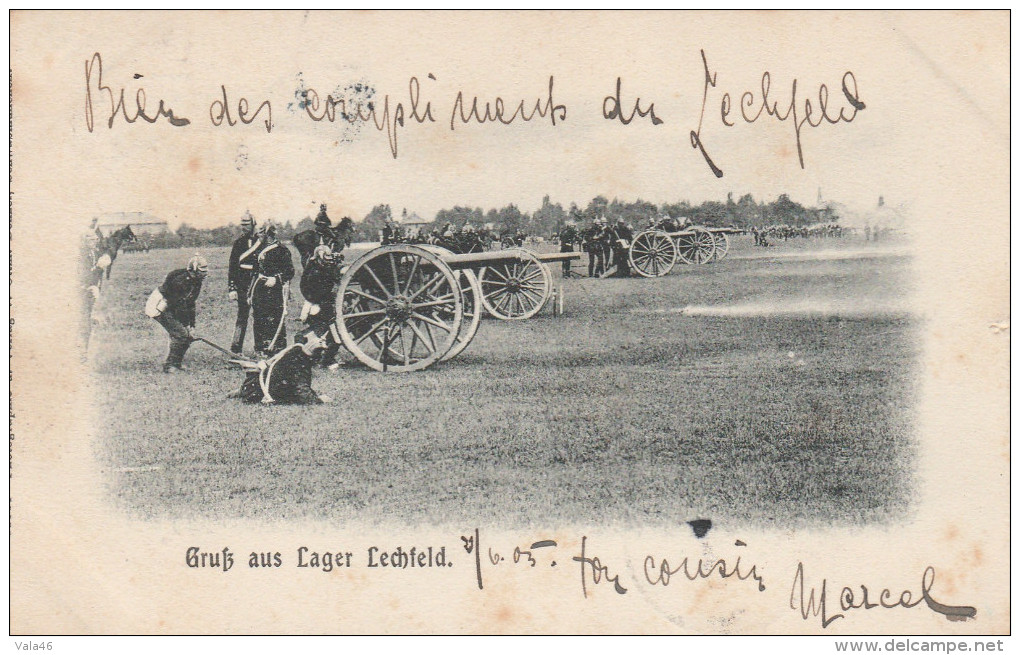 Bien des compliments du Lechfeld
Gruß aus Lager Lechfeld. 7/6.05. ton cousin Marcel
Vala46
www.delcampe.net